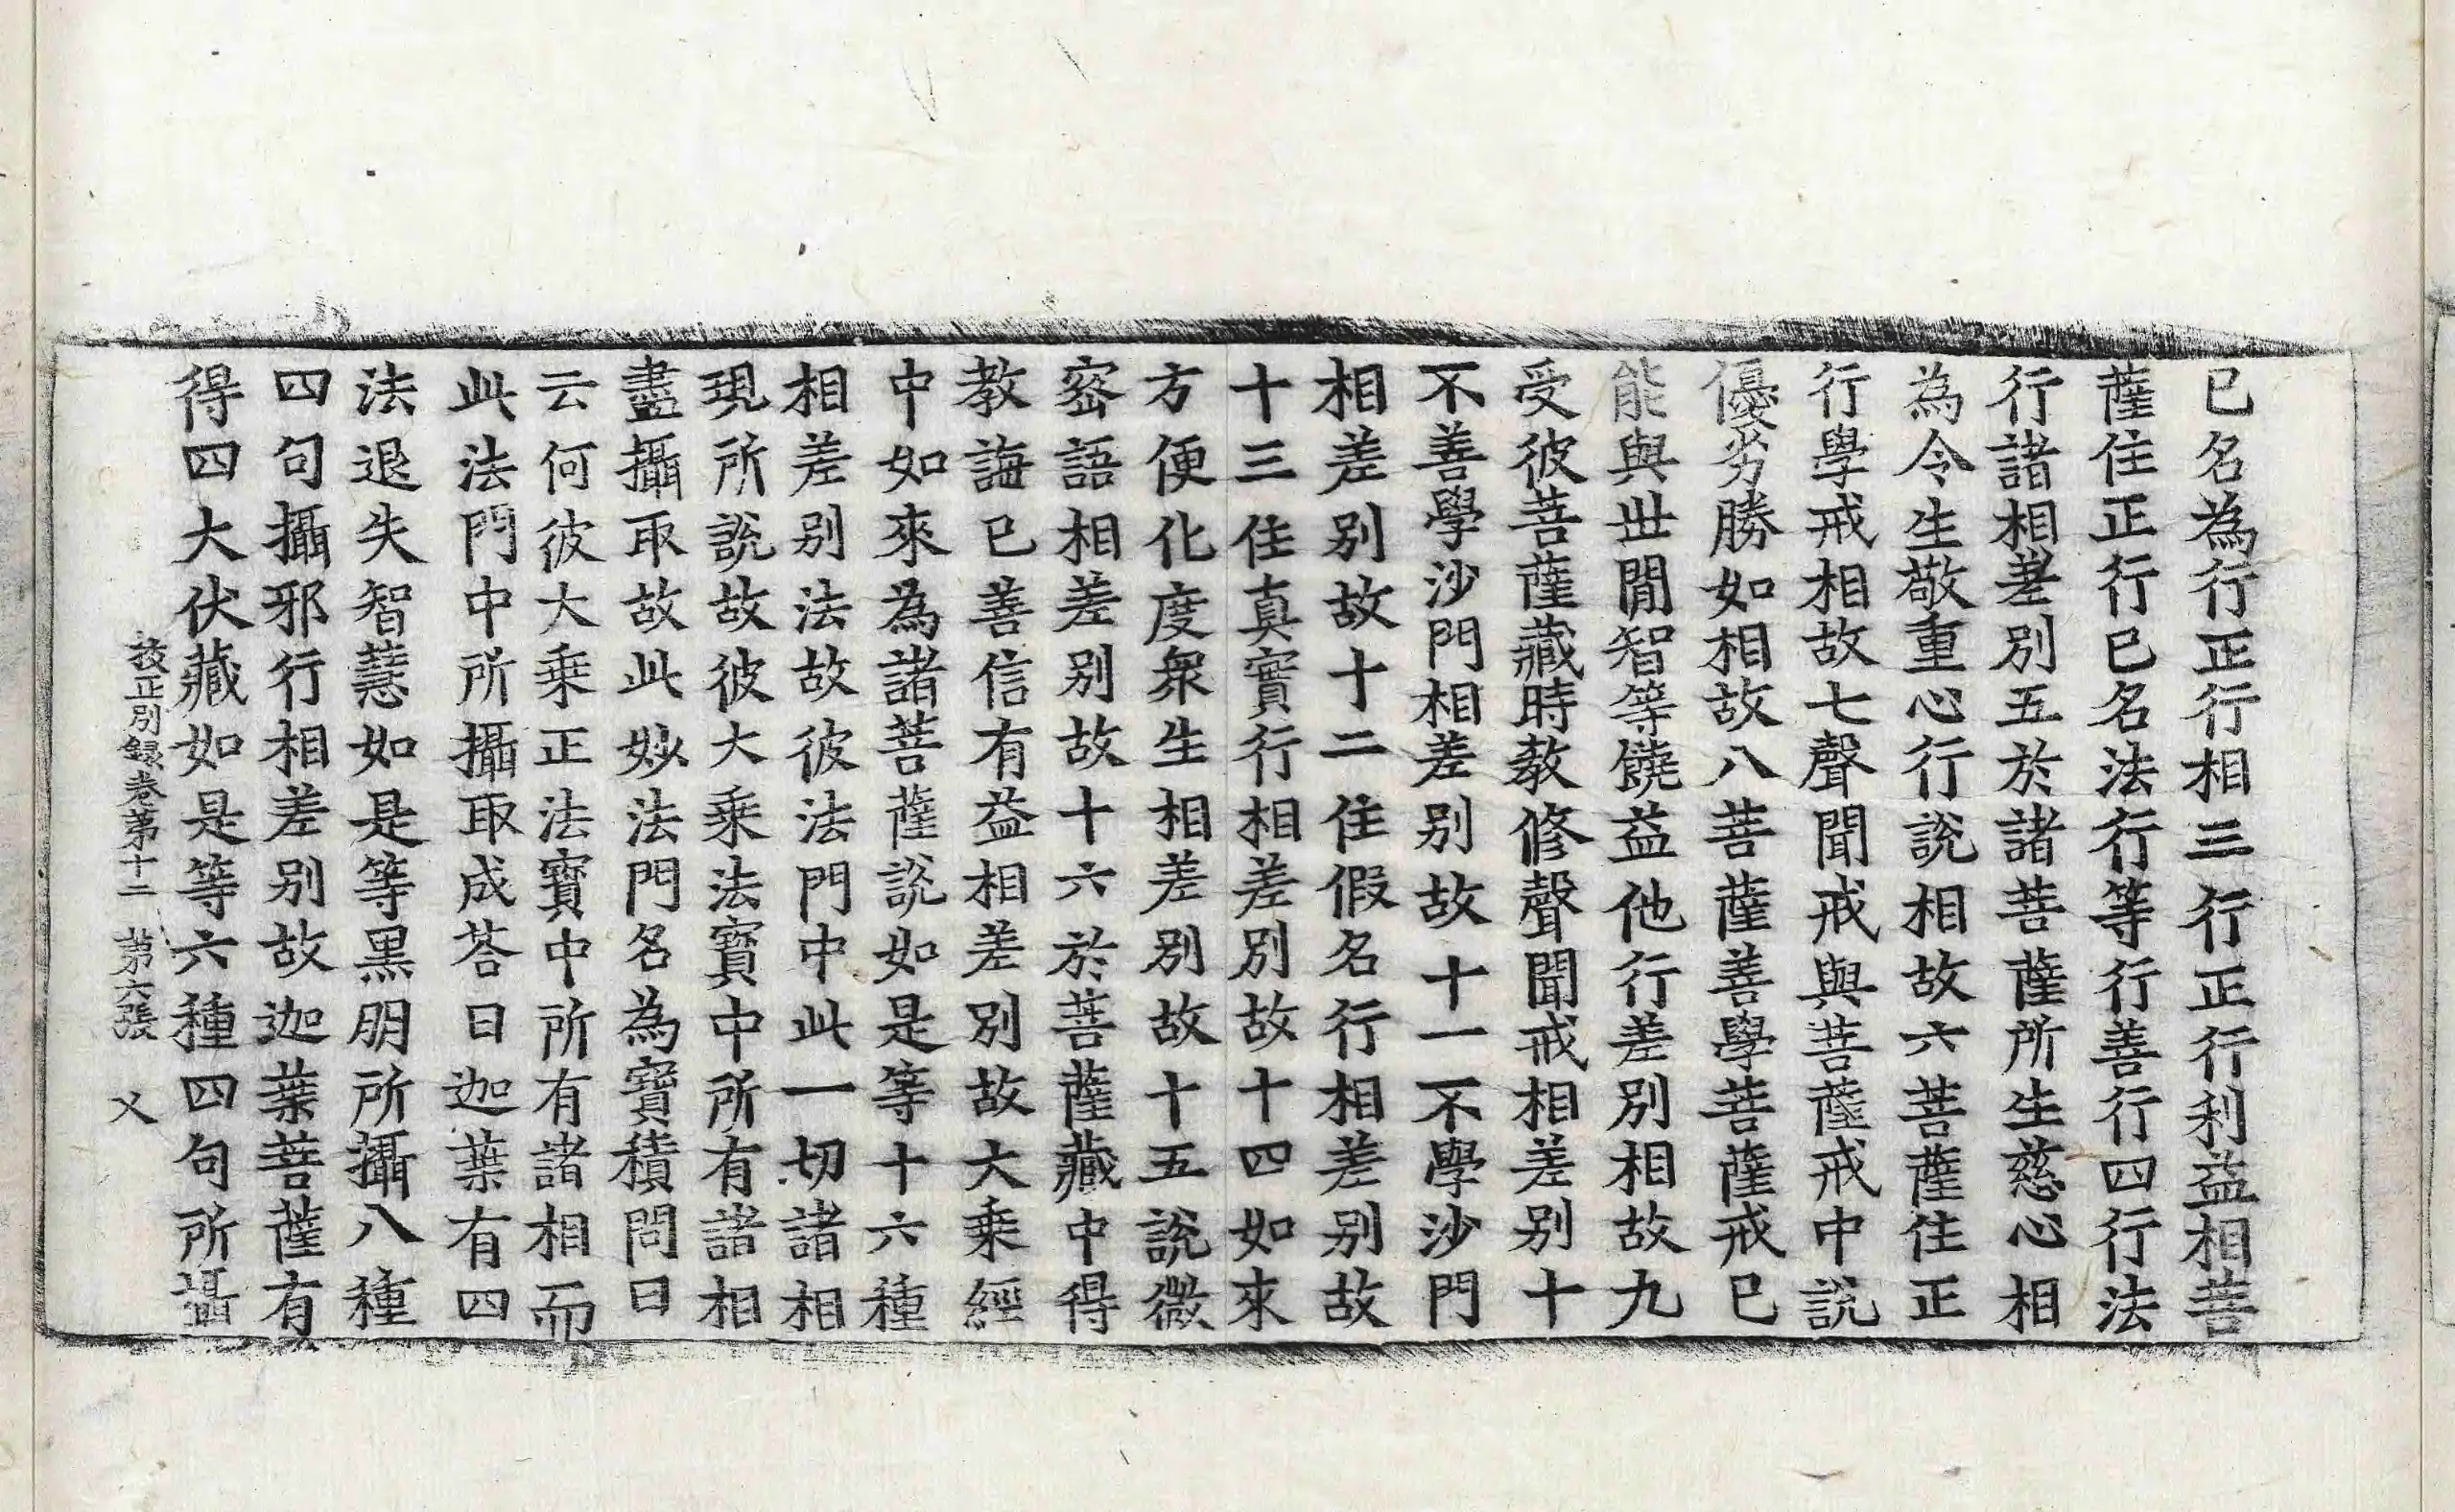 已名為行正行相三行正行利益相菩
薩住正行已名法行等行善行四行法
行諸相差別五於諸菩薩所生慈心相
為令生敬重心行說相故六菩薩住正
行學戒相故七聲聞戒與菩薩戒中說
優劣勝如相故八菩薩善學菩薩戒已
能與世間智等饒益他行差別相故九
受彼菩薩藏時教修聲聞戒相差別十
不善學沙門相差別故十一不學沙門
相差別故十二住假名行相差別故
十三住真實行相差別故十四如來
方便化度衆生相差別故十五說微
密語相差別故十六於菩薩藏中得
教誨已善信有益相差別故大乘經
中如來為諸菩薩說如是等十六種
相差別法故彼法門中此一切諸相
現所說故彼大乘法寶中所有諸相
盡攝取故此妙法門名為寶積問曰
云何彼大乘正法寶中所有諸相而
此法門中所攝取成荅曰迦葉有四
法退失智慧如是等黑朋所攝八種
四句攝邪行相差別故迦葉菩薩有
得四大伏藏如是等六種四句所攝
挍正別録卷第十二 第六張 㐅